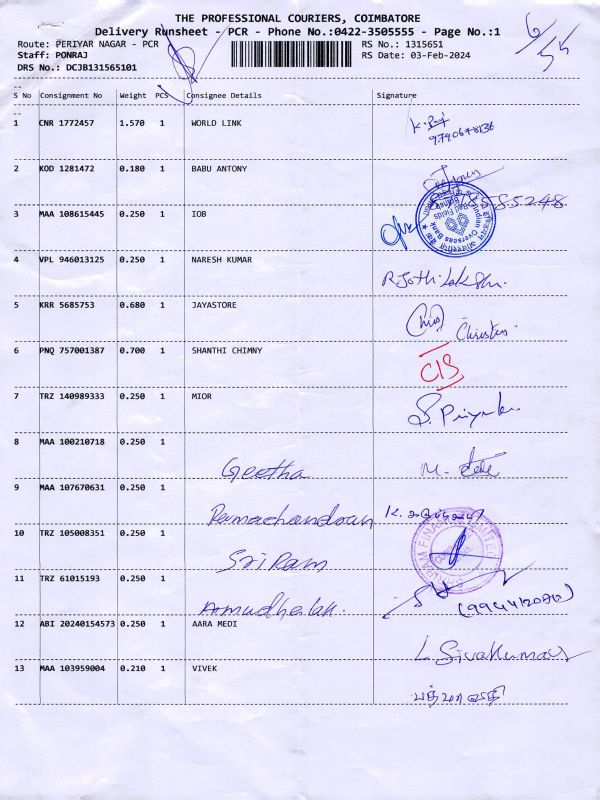 THE PROFESSIONAL COURIERS, COIMBATORE
Delivery Runsheet - PCR - Phone No.:0422-3505555 - Page No.:1
Route: PERIYAR NAGAR - PCR RS No.: 1315651
Staff: PONRAJ RS Date: 03-Feb-2024
DRS No.: DCJB131565101
S No Consignment No Weight PCS Consignee Details Signature
1 CNR 1772457 1.570 1 WORLD LINK
2 KOD 1281472 0.180 1 BABU ANTONY
3 MAA 108615445 0.250 1 IOB
Indian Overseas Bank
4 VPL 946013125 0.250 1 NARESH KUMAR R Jothi Lakshmi.
5 KRR 5685753 0.680 1 JAYASTORE Christus.
6 PNQ 757001387 0.700 1 SHANTHI CHIMNY
7 TRZ 140989333 0.250 1 MIOR S. Priyanka
8 MAA 100210718 0.250 1 Geetha
9 MAA 107670631 0.250 1 Ramachandran
10 TRZ 105008351 0.250 1 Sri Ram
11 TRZ 61015193 0.250 1
12 ABI 20240154573 0.250 1 AARA MEDI L Sivakumar
13 MAA 103959004 0.210 1 VIVEK பத்மாவதி